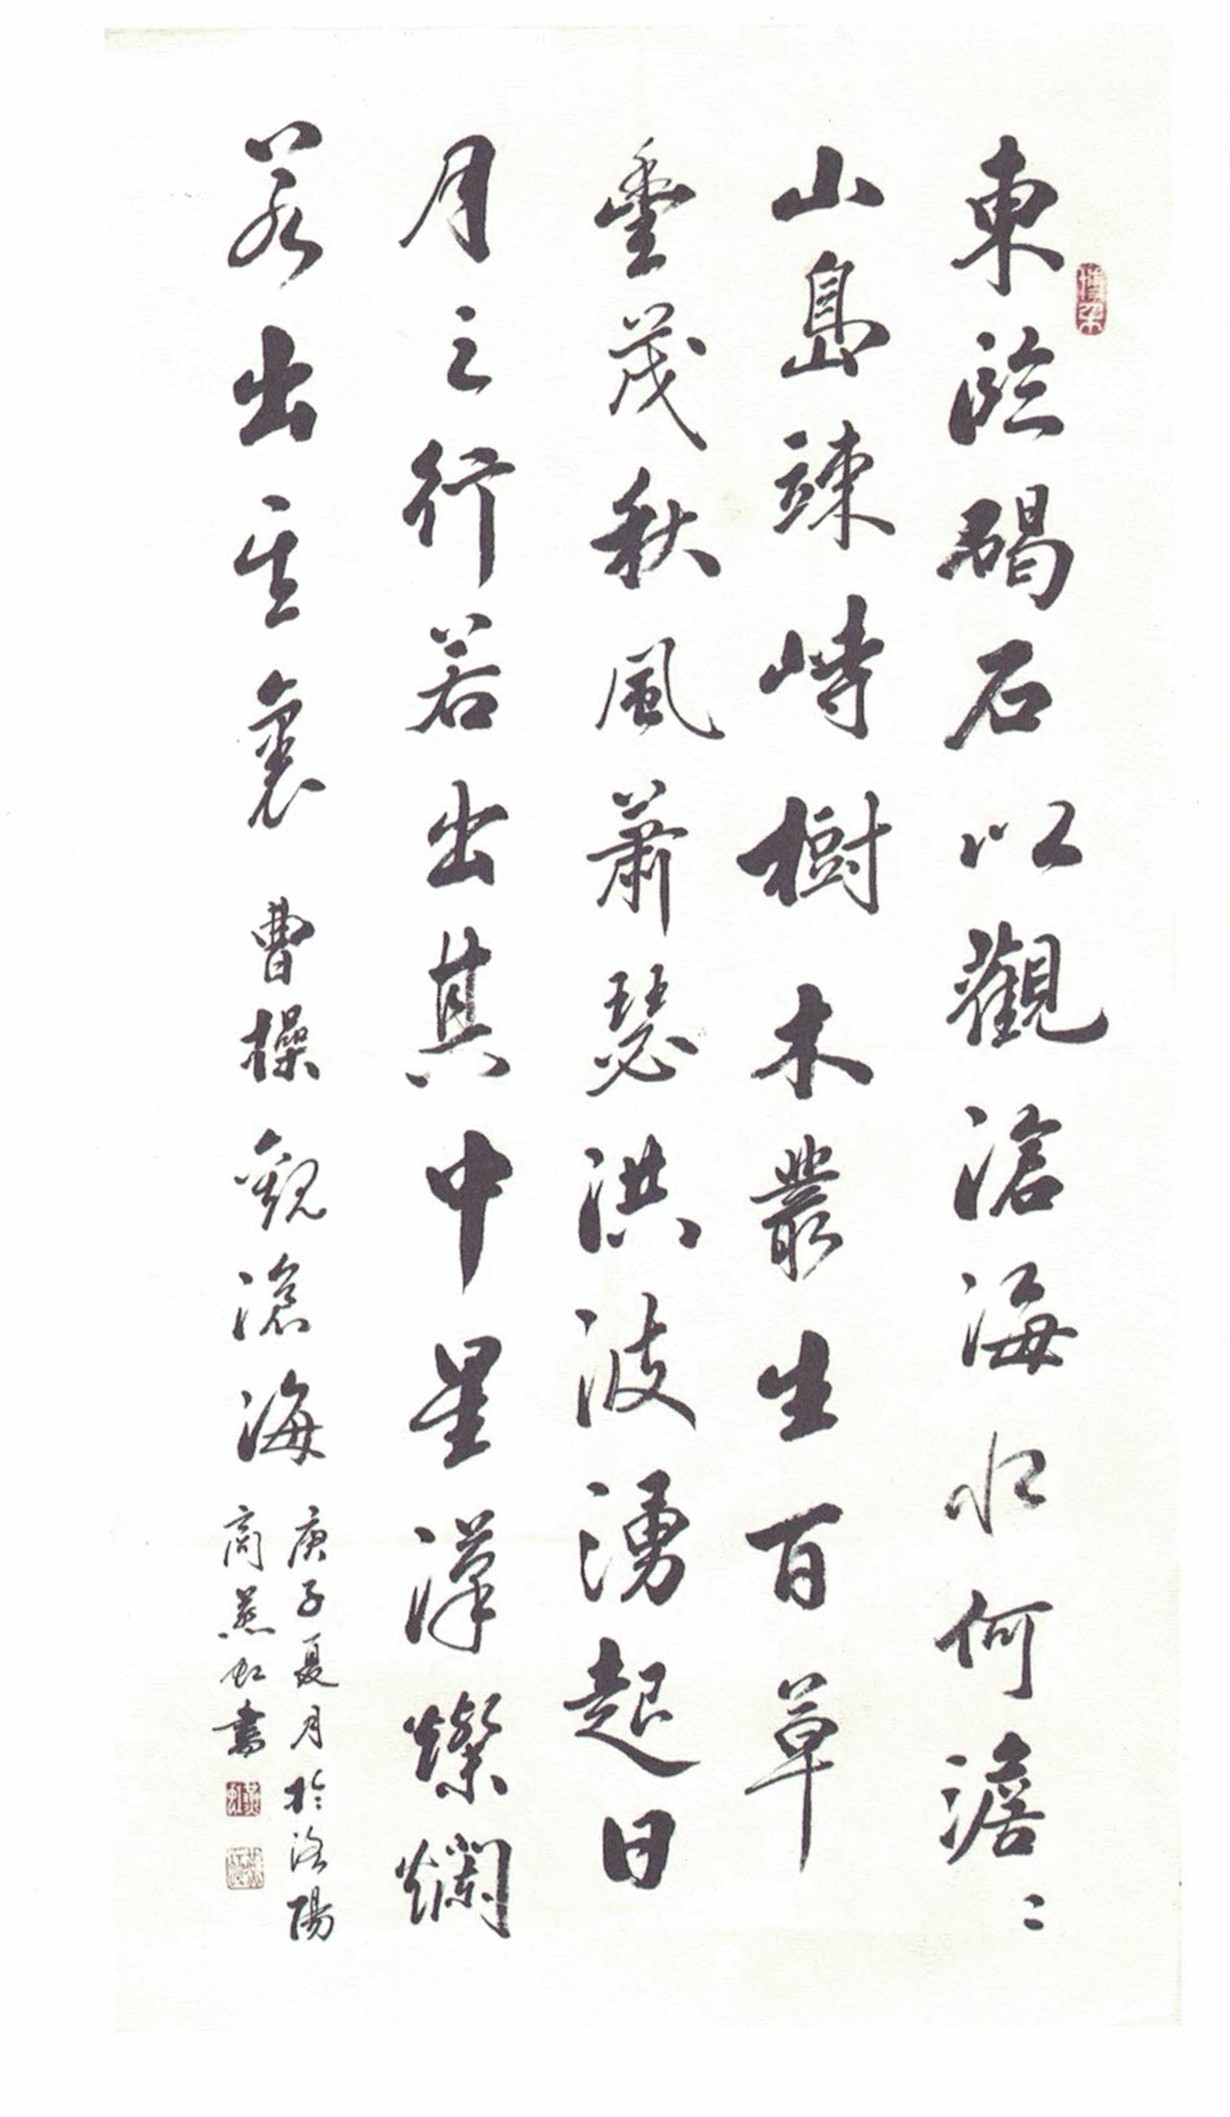 東臨碣石以觀滄海水何澹〻
山島竦峙樹木叢生百草
豐茂秋風蕭瑟洪波湧起日
月之行若出其中星漢燦爛
若出其裏 曹操觀滄海
庚子夏月於洛陽
商燕虹書